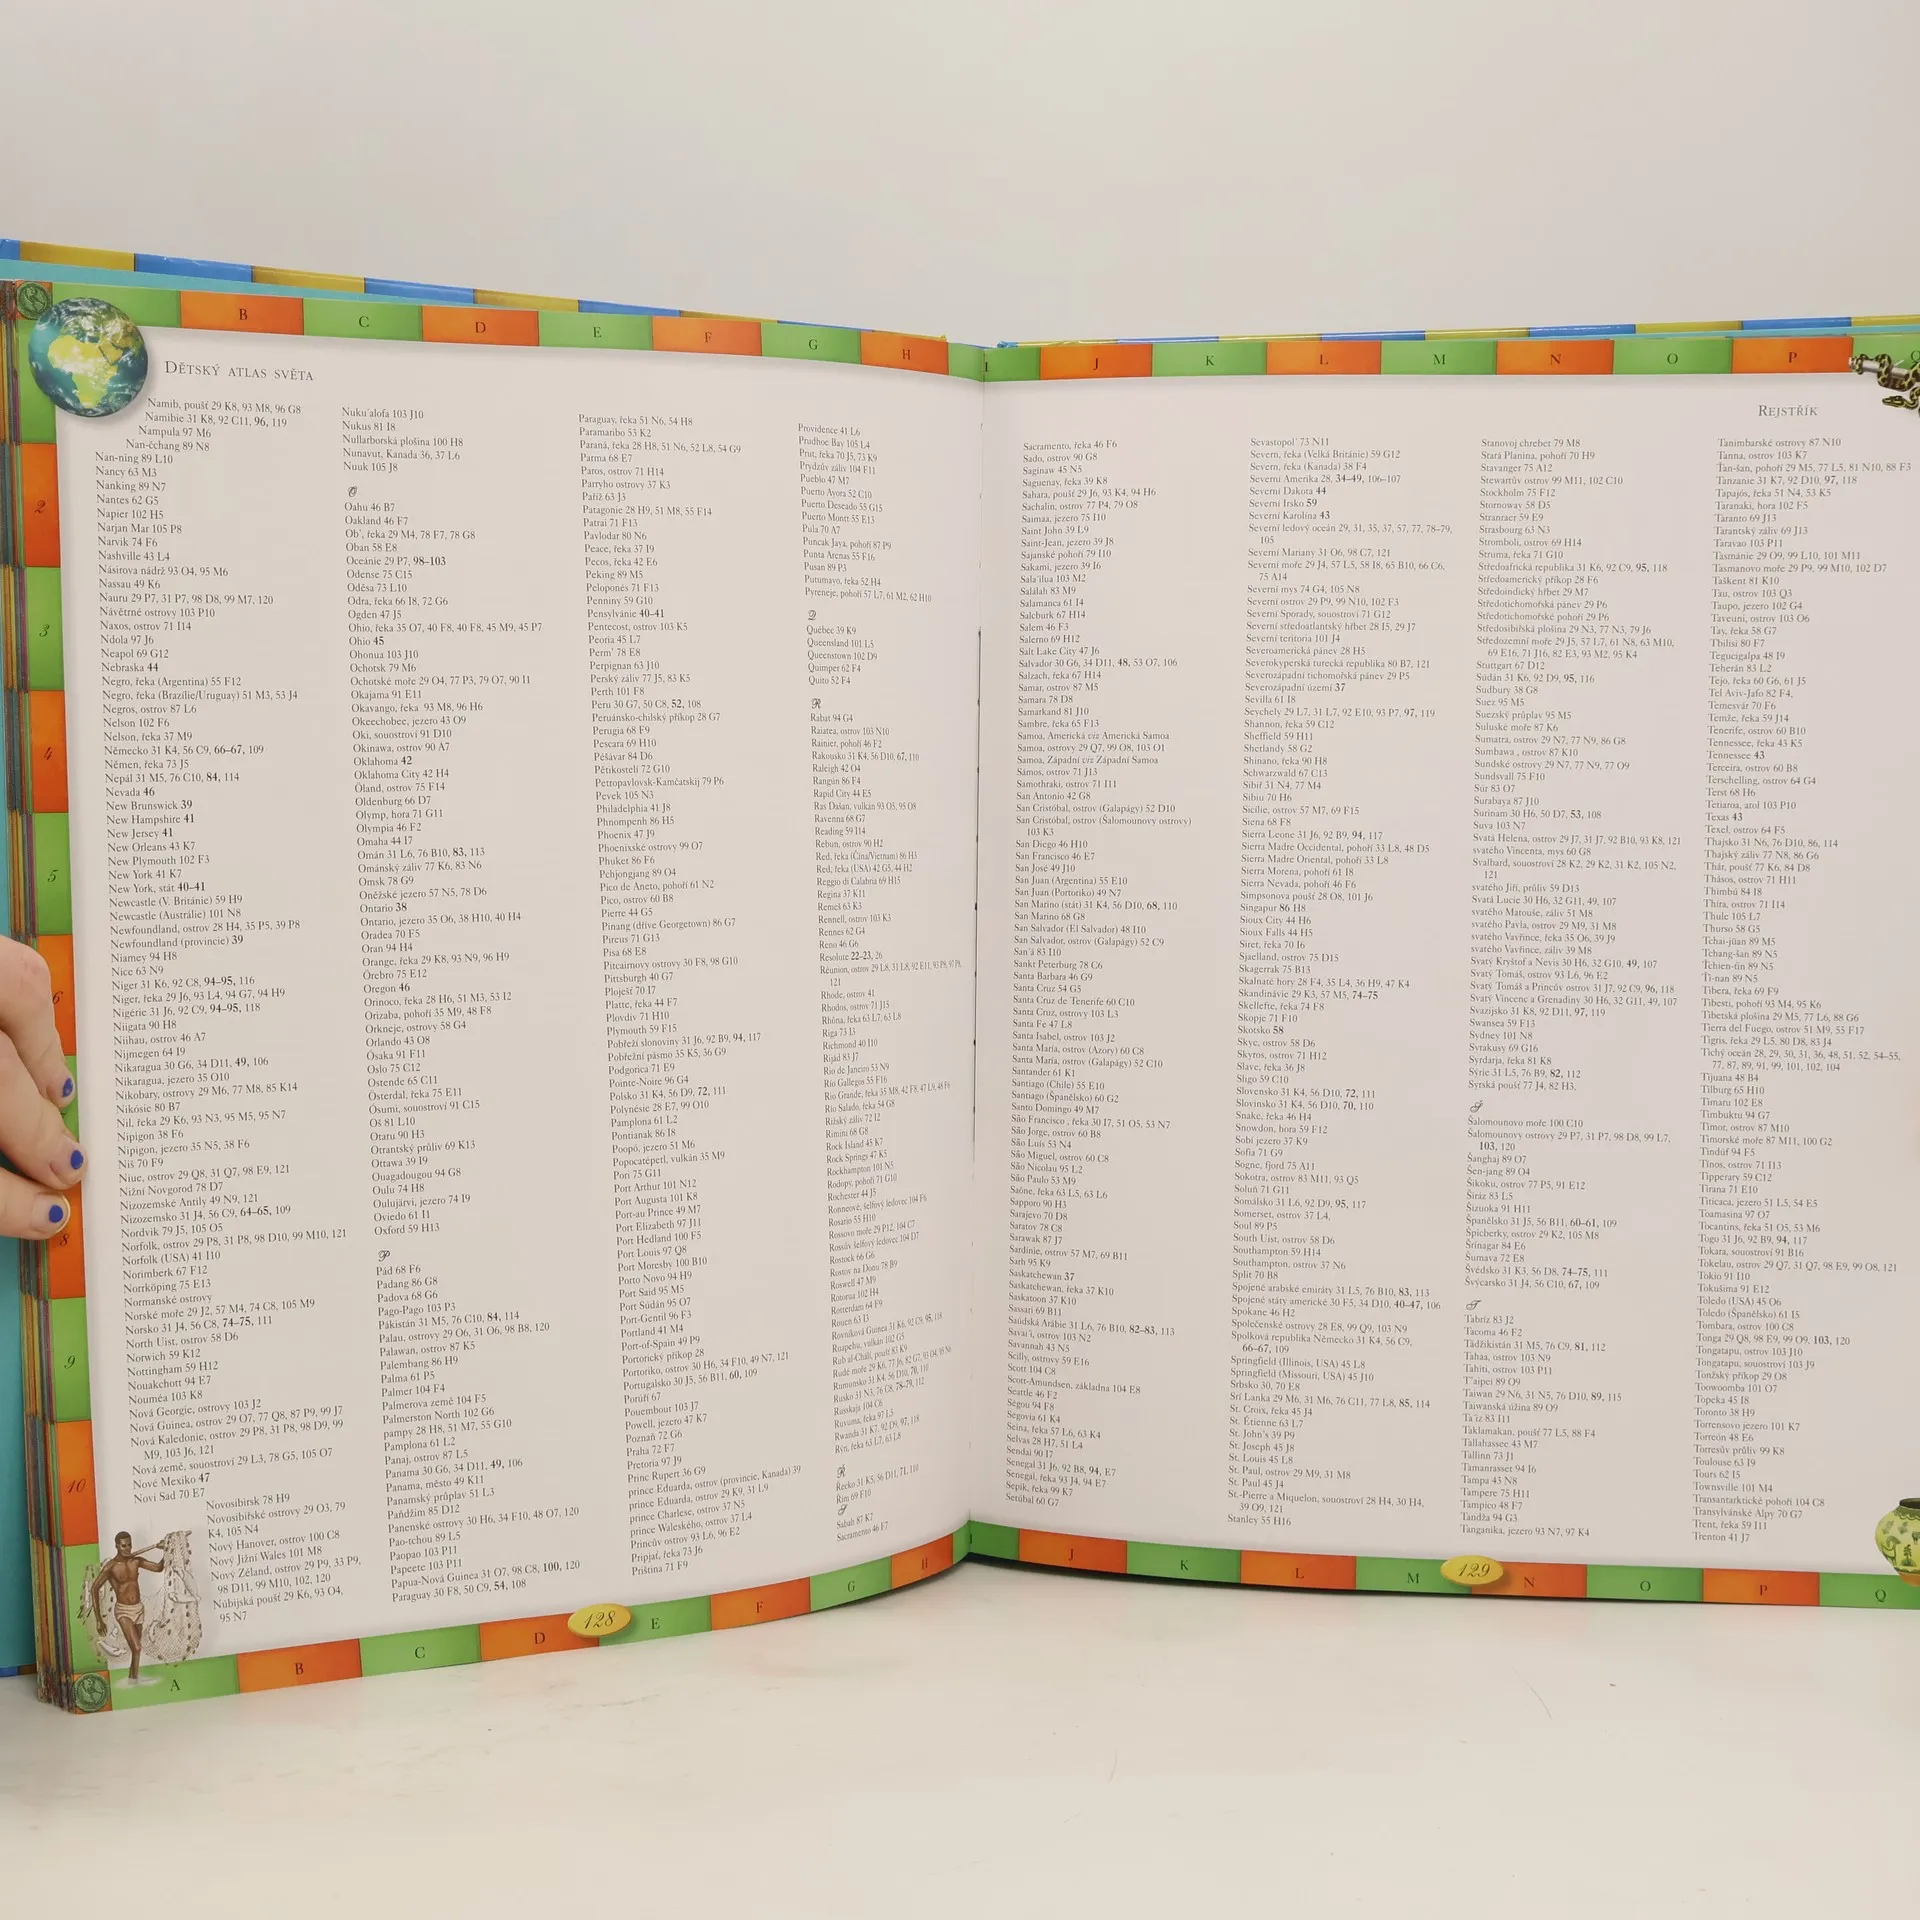 B
C
D
E
F
G
H
DĚTSKÝ ATLAS SVĚTA
Namib, poušť 29 K8, 93 M8, 96 G8
Namibie 31 K8, 92 C11, 96, 119
Nampula 97 M6
Nan-čchang 89 N8
Nan-ning 89 L10
Nancy 63 M3
Nanking 89 N7
Nantes 62 G5
Napier 102 H5
Narjan Mar 105 P8
Narvik 74 F6
Nashville 43 L4
Násirova nádrž 93 O4, 95 M6
Nassau 49 K6
Nauru 29 P7, 31 P7, 98 D8, 99 M7, 120
Návětrné ostrovy 103 P10
Naxos, ostrov 71 I14
Ndola 97 J6
Neapol 69 G12
Nebraska 44
Negro, řeka (Argentina) 55 F12
Negro, řeka (Brazílie/Uruguay) 51 M3, 53 J4
Negros, ostrov 87 L6
Nelson 102 F6
Nelson, řeka 37 M9
Německo 31 K4, 56 C9, 66–67, 109
Němen, řeka 73 J5
Nepál 31 M5, 76 C10, 84, 114
Nevada 46
New Brunswick 39
New Hampshire 41
New Jersey 41
New Orleans 43 K7
New Plymouth 102 F3
New York 41 K7
New York, stát 40–41
Newcastle (V. Británie) 59 H9
Newcastle (Austrálie) 101 N8
Newfoundland, ostrov 28 H4, 35 P5, 39 P8
Newfoundland (provincie) 39
Niamey 94 H8
Nice 63 N9
Niger 31 K6, 92 C8, 94–95, 116
Niger, řeka 29 J6, 93 L4, 94 G7, 94 H9
Nigérie 31 J6, 92 C9, 94–95, 118
Niigata 90 H8
Niihau, ostrov 46 A7
Nijmegen 64 I9
Nikaragua 30 G6, 34 D11, 49, 106
Nikaragua, jezero 35 O10
Nikobary, ostrovy 29 M6, 77 M8, 85 K14
Nikósie 80 B7
Nil, řeka 29 K6, 93 N3, 95 M5, 95 N7
Nipigon 38 F6
Nipigon, jezero 35 N5, 38 F6
Niš 70 F9
Niue, ostrov 29 Q8, 31 Q7, 98 E9, 121
Nižní Novgorod 78 D7
Nizozemské Antily 49 N9, 121
Nizozemsko 31 J4, 56 C9, 64–65, 109
Nordvik 79 J5, 105 O5
Norfolk, ostrov 29 P8, 31 P8, 98 D10, 99 M10, 121
Norfolk (USA) 41 I10
Norimberk 67 F12
Norrköping 75 E13
Normanské ostrovy
Norské moře 29 J2, 57 M4, 74 C8, 105 M9
Norsko 31 J4, 56 C8, 74–75, 111
North Uist, ostrov 58 D6
Norwich 59 K12
Nottingham 59 H12
Nouakchott 94 E7
Nouméa 103 K8
Nová Georgie, ostrovy 103 J2
Nová Guinea, ostrov 29 O7, 77 Q8, 87 P9, 99 J7
Nová Kaledonie, ostrov 29 P8, 31 P8, 98 D9, 99
M9, 103 J6, 121
Nová země, souostroví 29 L3, 78 G5, 105 O7
Nové Mexiko 47
Novi Sad 70 E7
Novosibirsk 78 H9
Novosibiřské ostrovy 29 O3, 79
K4, 105 N4
Nový Hanover, ostrov 100 C8
Nový Jižní Wales 101 M8
Nový Zéland, ostrov 29 P9, 33 P9,
98 D11, 99 M10, 102, 120
Núbijská poušť 29 K6, 93 O4,
95 N7
Nuku'alofa 103 J10
Nukus 81 I8
Nullarborská plošina 100 H8
Nunavut, Kanada 36, 37 L6
Nuuk 105 J8
O
Oahu 46 B7
Oakland 46 F7
Ob', řeka 29 M4, 78 F7, 78 G8
Oban 58 E8
Oceánie 29 P7, 98–103
Odense 75 C15
Oděsa 73 L10
Odra, řeka 66 I8, 72 G6
Ogden 47 J5
Ohio, řeka 35 O7, 40 F8, 40 F8, 45 M9, 45 P7
Ohio 45
Ohonua 103 J10
Ochotsk 79 M6
Ochotské moře 29 O4, 77 P3, 79 O7, 90 I1
Okajama 91 E11
Okavango, řeka 93 M8, 96 H6
Okeechobee, jezero 43 O9
Oki, souostroví 91 D10
Okinawa, ostrov 90 A7
Oklahoma 42
Oklahoma City 42 H4
Öland, ostrov 75 F14
Oldenburg 66 D7
Olymp, hora 71 G11
Olympia 46 F2
Omaha 44 I7
Omán 31 L6, 76 B10, 83, 113
Ománský záliv 77 K6, 83 N6
Omsk 78 G9
Oněžské jezero 57 N5, 78 D6
Ontario 38
Ontario, jezero 35 O6, 38 H10, 40 H4
Oradea 70 F5
Oran 94 H4
Orange, řeka 29 K8, 93 N9, 96 H9
Örebro 75 E12
Oregon 46
Orinoco, řeka 28 H6, 51 M3, 53 I2
Orizaba, pohoří 35 M9, 48 F8
Orkneje, ostrovy 58 G4
Orlando 43 O8
Ósaka 91 F11
Oslo 75 C12
Ostende 65 C11
Österdal, řeka 75 E11
Ósumi, souostroví 91 C15
Oš 81 L10
Otaru 90 H3
Otrantský průliv 69 K13
Ottawa 39 I9
Ouagadougou 94 G8
Oulu 74 H8
Oulujärvi, jezero 74 I9
Oviedo 61 I1
Oxford 59 H13
P
Pád 68 F6
Padang 86 G8
Padova 68 G6
Pago-Pago 103 P3
Pákistán 31 M5, 76 C10, 84, 114
Palau, ostrovy 29 O6, 31 O6, 98 B8, 120
Palawan, ostrov 87 K5
Palembang 86 H9
Palma 61 P5
Palmer 104 F4
Palmerova země 104 F5
Palmerston North 102 G6
pampy 28 H8, 51 M7, 55 G10
Pamplona 61 L2
Panaj, ostrov 87 L5
Panama 30 G6, 34 D11, 49, 106
Panama, město 49 K11
Panamský průplav 51 L3
Paňdžim 85 D12
Panenské ostrovy 30 H6, 34 F10, 48 O7, 120
Pao-tchou 89 L5
Paopao 103 P11
Papeete 103 P11
Papua-Nová Guinea 31 O7, 98 C8, 100, 120
Paraguay 30 F8, 50 C9, 54, 108
Paraguay, řeka 51 N6, 54 H8
Paramaribo 53 K2
Paraná, řeka 28 H8, 51 N6, 52 L8, 54 G9
Parma 68 E7
Paros, ostrov 71 H14
Parryho ostrovy 37 K3
Paříž 63 J3
Patagonie 28 H9, 51 M8, 55 F14
Patrai 71 F13
Pavlodar 80 N6
Peace, řeka 37 I9
Pecos, řeka 42 E6
Peking 89 M5
Peloponés 71 F13
Penniny 59 G10
Pensylvánie 40–41
Pentecost, ostrov 103 K5
Peoria 45 L7
Perm' 78 E8
Perpignan 63 J10
Perský záliv 77 J5, 83 K5
Perth 101 F8
Peru 30 G7, 50 C8, 52, 108
Peruánsko-chilský příkop 28 G7
Perugia 68 F9
Pescara 69 H10
Péšávar 84 D6
Pětikostelí 72 G10
Petropavlovsk-Kamčatskij 79 P6
Pevek 105 N3
Philadelphia 41 J8
Phnompenh 86 H5
Phoenix 47 J9
Phoenixské ostrovy 99 O7
Phuket 86 F6
Pchjongjang 89 O4
Pico de Aneto, pohoří 61 N2
Pico, ostrov 60 B8
Pierre 44 G5
Pinang (dříve Georgetown) 86 G7
Pireus 71 G13
Pisa 68 E8
Pitcairnovy ostrovy 30 F8, 98 G10
Pittsburgh 40 G7
Ploješť 70 I7
Platte, řeka 44 F7
Plovdiv 71 H10
Plymouth 59 F15
Pobřeží slonoviny 31 J6, 92 B9, 94, 117
Pobřežní pásmo 35 K5, 36 G9
Podgorica 71 E9
Pointe-Noire 96 G4
Polsko 31 K4, 56 D9, 72, 111
Polynésie 28 E7, 99 O10
Pamplona 61 L2
Pontianak 86 I8
Poopó, jezero 51 M6
Popocatépetl, vulkán 35 M9
Pori 75 G11
Port Arthur 101 N12
Port Augusta 101 K8
Port-au Prince 49 M7
Port Elizabeth 97 J11
Port Hedland 100 F5
Port Louis 97 Q8
Port Moresby 100 B10
Porto Novo 94 H9
Port Said 95 M5
Port Súdán 95 O7
Port-Gentil 96 F3
Portland 41 M4
Port-of-Spain 49 P9
Portorický příkop 28
Portoriko, ostrov 30 H6, 34 F10, 49 N7, 121
Portugalsko 30 J5, 56 B11, 60, 109
Porúří 67
Pouembout 103 J7
Powell, jezero 47 K7
Poznaň 72 G6
Praha 72 F7
Pretoria 97 J9
Princ Rupert 36 G9
prince Eduarda, ostrov (provincie, Kanada) 39
prince Eduarda, ostrov 29 K9, 31 L9
prince Charlese, ostrov 37 N5
prince Waleského, ostrov 37 L4
Princův ostrov 93 L6, 96 E2
Pripjať, řeka 73 J6
Priština 71 F9
Providence 41 L6
Prudhoe Bay 105 L4
Prut, řeka 70 J5, 73 K9
Prydzův záliv 104 F11
Pueblo 47 M7
Puerto Ayora 52 C10
Puerto Deseado 55 G15
Puerto Montt 55 E13
Pula 70 A7
Puncak Jaya, pohoří 87 P9
Punta Arenas 55 F16
Pusan 89 P3
Putumayo, řeka 52 H4
Pyreneje, pohoří 57 L7, 61 M2, 62 H10
Q
Québec 39 K9
Queensland 101 L5
Queenstown 102 D9
Quimper 62 F4
Quito 52 F4
R
Rabat 94 G4
Raiatea, ostrov 103 N10
Rainier, pohoří 46 F2
Rakousko 31 K4, 56 D10, 67, 110
Raleigh 42 O4
Rangún 86 F4
Rapid City 44 E5
Ras Dašan, vulkán 93 O5, 95 O8
Ravenna 68 G7
Reading 59 I14
Rebun, ostrov 90 H2
Red, řeka (Čína/Vietnam) 86 H3
Red, řeka (USA) 42 G5, 44 H2
Reggio di Calabria 69 H15
Regina 37 K11
Remeš 63 K3
Rennell, ostrov 103 K3
Rennes 62 G4
Reno 46 G6
Resolute 22–23, 26
Réunion, ostrov 29 L8, 31 L8, 92 E11, 93 P8, 97 P8,
121
Rhode, ostrov 41
Rhodos, ostrov 71 J15
Rhôna, řeka 63 L7, 63 L8
Riga 73 I3
Richmond 40 I10
Rijád 83 J7
Rio de Janeiro 53 N9
Rio Gallegos 55 F16
Rio Grande, řeka 35 M8, 42 F8, 47 L9, 48 F6
Rio Salado, řeka 54 G8
Rižský záliv 72 I2
Rimini 68 G8
Rock Island 45 K7
Rock Springs 47 K5
Rockhampton 101 N5
Rodopy, pohoří 71 G10
Rochester 44 J5
Ronneově, šelfový ledovec 104 F6
Rosario 55 H10
Rossovo moře 29 P12, 104 C7
Rossův šelfový ledovec 104 D7
Rostock 66 G6
Rostov na Donu 78 B9
Roswell 47 M9
Rotorua 102 H4
Rotterdam 64 F9
Rouen 63 I3
Rovníková Guinea 31 K6, 92 C9, 95, 118
Ruapehu, vulkán 102 G5
Rub al-Chálí, poušť 83 K9
Rudé moře 29 K6, 77 J6, 82 G7, 93 O4, 95 N6
Rumunsko 31 K4, 56 D10, 70, 110
Rusko 31 N3, 76 C8, 78–79, 112
Russkaja 104 C6
Ruvuma, řeka 97 L5
Rwanda 31 K7, 92 D9, 97, 118
Rýn, řeka 63 L7, 63 L8
Ř
Řecko 31 K5, 56 D11, 71, 110
Řím 69 F10
S
Sabah 87 K7
Sacramento 46 F7
2
3
4
5
6
8
9
10
A
B
C
D
128
E
F
G
H
I
J
K
L
M
N
O
P
Q
REJSTŘÍK
Sacramento, řeka 46 F6
Sado, ostrov 90 G8
Saginaw 45 N5
Saguenay, řeka 39 K8
Sahara, poušť 29 J6, 93 K4, 94 H6
Sachalin, ostrov 77 P4, 79 O8
Saimaa, jezero 75 I10
Saint John 39 L9
Saint-Jean, jezero 39 J8
Sajanské pohoří 79 I10
Sakami, jezero 39 I6
Sala'ilua 103 M2
Salálah 83 M9
Salamanca 61 I4
Salcburk 67 H14
Salem 46 F3
Salerno 69 H12
Salt Lake City 47 J6
Salvador 30 G6, 34 D11, 48, 53 O7, 106
Salzach, řeka 67 H14
Samar, ostrov 87 M5
Samara 78 D8
Samarkand 81 J10
Sambre, řeka 65 F13
Samoa, Americká viz Americká Samoa
Samoa, ostrovy 29 Q7, 99 O8, 103 O1
Samoa, Západní viz Západní Samoa
Sámos, ostrov 71 J13
Samothraki, ostrov 71 I11
San Antonio 42 G8
San Cristóbal, ostrov (Galapágy) 52 D10
San Cristóbal, ostrov (Šalomounovy ostrovy)
103 K3
San Diego 46 H10
San Francisco 46 E7
San José 49 J10
San Juan (Argentina) 55 E10
San Juan (Portoriko) 49 N7
San Marino (stát) 31 K4, 56 D10, 68, 110
San Marino 68 G8
San Salvador (El Salvador) 48 I10
San Salvador, ostrov (Galapágy) 52 C9
San'á 83 I10
Sankt Peterburg 78 C6
Santa Barbara 46 G9
Santa Cruz 54 G5
Santa Cruz de Tenerife 60 C10
Santa Cruz, ostrovy 103 L3
Santa Fe 47 L8
Santa Isabel, ostrov 103 J2
Santa María, ostrov (Azory) 60 C8
Santa María, ostrov (Galapágy) 52 C10
Santander 61 K1
Santiago (Chile) 55 E10
Santiago (Španělsko) 60 G2
Santo Domingo 49 M7
São Francisco, řeka 30 I7, 51 O5, 53 N7
São Jorge, ostrov 60 B8
São Luís 53 N4
São Miguel, ostrov 60 C8
São Nicolau 95 L2
São Paulo 53 M9
Saône, řeka 63 L5, 63 L6
Sapporo 90 H3
Sarajevo 70 D8
Saratov 78 C8
Sarawak 87 J7
Sardinie, ostrov 57 M7, 69 B11
Sarh 95 K9
Saskatchewan 37
Saskatchewan, řeka 37 K10
Saskatoon 37 K10
Sassari 69 B11
Saúdská Arábie 31 L6, 76 B10, 82–83, 113
Savai'i, ostrov 103 N2
Savannah 43 N5
Scilly, ostrovy 59 E16
Scott 104 C8
Scott-Amundsen, základna 104 E8
Seattle 46 F2
Ségou 94 F8
Segovia 61 K4
Seina, řeka 57 L6, 63 K4
Selvas 28 H7, 51 L4
Sendai 90 I7
Senegal 31 J6, 92 B8, 94, E7
Senegal, řeka 93 J4, 94 E7
Sepik, řeka 99 K7
Setúbal 60 G7
Sevastopol' 73 N11
Severn, řeka (Velká Británie) 59 G12
Severn, řeka (Kanada) 38 F4
Severní Amerika 28, 34–49, 106–107
Severní Dakota 44
Severní Irsko 59
Severní Karolína 43
Severní ledový oceán 29, 31, 35, 37, 57, 77, 78–79,
105
Severní Mariany 31 O6, 98 C7, 121
Severní moře 29 J4, 57 L5, 58 I8, 65 B10, 66 C6,
75 A14
Severní mys 74 G4, 105 N8
Severní ostrov 29 P9, 99 N10, 102 F3
Severní Sporady, souostroví 71 G12
Severní středoatlantský hřbet 28 I5, 29 J7
Severní teritoria 101 J4
Severoamerická pánev 28 H5
Severokyperská turecká republika 80 B7, 121
Severozápadní tichomořská pánev 29 P5
Severozápadní území 37
Sevilla 61 I8
Seychely 29 L7, 31 L7, 92 E10, 93 P7, 97, 119
Shannon, řeka 59 C12
Sheffield 59 H11
Shetlandy 58 G2
Shinano, řeka 90 H8
Schwarzwald 67 C13
Sibiř 31 N4, 77 M4
Sibiu 70 H6
Sicílie, ostrov 57 M7, 69 F15
Siena 68 F8
Sierra Leone 31 J6, 92 B9, 94, 117
Sierra Madre Occidental, pohoří 33 L8, 48 D5
Sierra Madre Oriental, pohoří 33 L8
Sierra Morena, pohoří 61 I8
Sierra Nevada, pohoří 46 F6
Simpsonova poušť 28 O8, 101 J6
Singapur 86 H8
Sioux City 44 H6
Sioux Falls 44 H5
Siret, řeka 70 I6
Sjaelland, ostrov 75 D15
Skagerrak 75 B13
Skalnaté hory 28 F4, 35 L4, 36 H9, 47 K4
Skandinávie 29 K3, 57 M5, 74–75
Skellefte, řeka 74 F8
Skopje 71 F10
Skotsko 58
Skye, ostrov 58 D6
Skyros, ostrov 71 H12
Slave, řeka 36 J8
Sligo 59 C10
Slovensko 31 K4, 56 D10, 72, 111
Slovinsko 31 K4, 56 D10, 70, 110
Snake, řeka 46 H4
Snowdon, hora 59 F12
Sobí jezero 37 K9
Sofia 71 G9
Sogne, fjord 75 A11
Sokotra, ostrov 83 M11, 93 Q5
Soluň 71 G11
Somálsko 31 L6, 92 D9, 95, 117
Somerset, ostrov 37 L4,
Soul 89 P5
South Uist, ostrov 58 D6
Southampton 59 H14
Southampton, ostrov 37 N6
Split 70 B8
Spojené arabské emiráty 31 L5, 76 B10, 83, 113
Spojené státy americké 30 F5, 34 D10, 40–47, 106
Spokane 46 H2
Společenské ostrovy 28 E8, 99 Q9, 103 N9
Spolková republika Německo 31 K4, 56 C9,
66–67, 109
Springfield (Illinois, USA) 45 L8
Springfield (Missouri, USA) 45 J10
Srbsko 30, 70 E8
Srí Lanka 29 M6, 31 M6, 76 C11, 77 L8, 85, 114
St. Croix, řeka 45 J4
St. Étienne 63 L7
St. John's 39 P9
St. Joseph 45 J8
St. Louis 45 L8
St. Paul, ostrov 29 M9, 31 M8
St. Paul 45 J4
St.-Pierre a Miquelon, souostroví 28 H4, 30 H4,
39 O9, 121
Stanley 55 H16
Stanovoj chrebet 79 M8
Stará Planina, pohoří 70 H9
Stavanger 75 A12
Stewartův ostrov 99 M11, 102 C10
Stockholm 75 F12
Stornoway 58 D5
Stranraer 59 E9
Strasbourg 63 N3
Stromboli, ostrov 69 H14
Struma, řeka 71 G10
Středoafrická republika 31 K6, 92 C9, 95, 118
Středoamerický příkop 28 F6
Středoindický hřbet 29 M7
Středotichomořská pánev 29 P6
Středotichomořské pohoří 29 P6
Středosibiřská plošina 29 N3, 77 N3, 79 J6
Středozemní moře 29 J5, 57 L7, 61 N8, 63 M10,
69 E16, 71 J16, 82 E3, 93 M2, 95 K4
Stuttgart 67 D12
Súdán 31 K6, 92 D9, 95, 116
Sudbury 38 G8
Suez 95 M5
Suezský průplav 95 M5
Suluské moře 87 K6
Sumatra, ostrov 29 N7, 77 N9, 86 G8
Sumbawa , ostrov 87 K10
Sundské ostrovy 29 N7, 77 N9, 77 O9
Sundsvall 75 F10
Súr 83 O7
Surabaya 87 J10
Surinam 30 H6, 50 D7, 53, 108
Suva 103 N7
Svatá Helena, ostrov 29 J7, 31 J7, 92 B10, 93 K8, 121
svatého Vincenta, mys 60 G8
Svalbard, souostroví 28 K2, 29 K2, 31 K2, 105 N2,
121
svatého Jiří, průliv 59 D13
Svatá Lucie 30 H6, 32 G11, 49, 107
svatého Matouše, záliv 51 M8
svatého Pavla, ostrov 29 M9, 31 M8
svatého Vavřince, řeka 35 O6, 39 J9
svatého Vavřince, záliv 39 M8
Svatý Kryštof a Nevis 30 H6, 32 G10, 49, 107
Svatý Tomáš, ostrov 93 L6, 96 E2
Svatý Tomáš a Princův ostrov 31 J7, 92 C9, 96, 118
Svatý Vincenc a Grenadiny 30 H6, 32 G11, 49, 107
Svazijsko 31 K8, 92 D11, 97, 119
Swansea 59 F13
Sydney 101 N8
Syrakusy 69 G16
Syrdarja, řeka 81 K8
Sýrie 31 L5, 76 B9, 82, 112
Syrská poušť 77 J4, 82 H3,
Š
Šalomounovo moře 100 C10
Šalomounovy ostrovy 29 P7, 31 P7, 98 D8, 99 L7,
103, 120
Šanghaj 89 O7
Šen-jang 89 O4
Šikoku, ostrov 77 P5, 91 E12
Šíráz 83 L5
Šizuoka 91 H11
Španělsko 31 J5, 56 B11, 60–61, 109
Špicberky, ostrov 29 K2, 105 M8
Šrínagar 84 E6
Šumava 72 E8
Švédsko 31 K3, 56 D8, 74–75, 111
Švýcarsko 31 J4, 56 C10, 67, 109
T
Tabríz 83 J2
Tacoma 46 F2
Tádžikistán 31 M5, 76 C9, 81, 112
Tahaa, ostrov 103 N9
Tahiti, ostrov 103 P11
T'aipei 89 O9
Taiwan 29 N6, 31 N5, 76 D10, 89, 115
Taiwanská úžina 89 O9
Ta'iz 83 I11
Táklamakan, poušť 77 L5, 88 F4
Tallahassee 43 M7
Tallinn 73 J1
Tamanrasset 94 I6
Tampa 43 N8
Tampere 75 H11
Tampico 48 F7
Tandža 94 G3
Tanganika, jezero 93 N7, 97 K4
Tanimbarské ostrovy 87 N10
Tanna, ostrov 103 K7
Ťan-šan, pohoří 29 M5, 77 L5, 81 N10, 88 F3
Tanzanie 31 K7, 92 D10, 97, 118
Tapajós, řeka 51 N4, 53 K5
Taranaki, hora 102 F5
Taranto 69 J13
Tarantský záliv 69 J13
Taravao 103 P11
Tasmánie 29 O9, 99 L10, 101 M11
Tasmanovo moře 29 P9, 99 M10, 102 D7
Taškent 81 K10
Tau, ostrov 103 Q3
Taupo, jezero 102 G4
Taveuni, ostrov 103 O6
Tay, řeka 58 G7
Tbilisi 80 F7
Tegucigalpa 48 I9
Teherán 83 L2
Tejo, řeka 60 G6, 61 J5
Tel Aviv-Jafo 82 F4,
Temesvár 70 F6
Temže, řeka 59 J14
Tenerife, ostrov 60 B10
Tennessee, řeka 43 K5
Tennessee 43
Terceira, ostrov 60 B8
Terschelling, ostrov 64 G4
Terst 68 H6
Tetiaroa, atol 103 P10
Texas 43
Texel, ostrov 64 F5
Thajsko 31 N6, 76 D10, 86, 114
Thajský záliv 77 N8, 86 G6
Thár, poušť 77 K6, 84 D8
Thásos, ostrov 71 H11
Thimbú 84 I8
Thíra, ostrov 71 I14
Thule 105 L7
Thurso 58 G5
Tchai-jüan 89 M5
Tchang-šan 89 N5
Tchien-ťin 89 N5
Ťi-nan 89 N5
Tibera, řeka 69 F9
Tibesti, pohoří 93 M4, 95 K6
Tibetská plošina 29 M5, 77 L6, 88 G6
Tierra del Fuego, ostrov 51 M9, 55 F17
Tigris, řeka 29 L5, 80 D8, 83 J4
Tichý oceán 28, 29, 30, 31, 36, 48, 51, 52, 54–55,
77, 87, 89, 91, 99, 101, 102, 104
Tijuana 48 B4
Tilburg 65 H10
Timaru 102 E8
Timbuktu 94 G7
Timor, ostrov 87 M10
Timorské moře 87 M11, 100 G2
Tindúf 94 F5
Tinos, ostrov 71 I13
Tipperary 59 C12
Tirana 71 E10
Titicaca, jezero 51 L5, 54 E5
Toamasina 97 O7
Tocantins, řeka 51 O5, 53 M6
Togo 31 J6, 92 B9, 94, 117
Tokara, souostroví 91 B16
Tokelau, ostrov 29 Q7, 31 Q7, 98 E9, 99 O8, 121
Tokio 91 I10
Tokušima 91 E12
Toledo (USA) 45 O6
Toledo (Španělsko) 61 I5
Tombara, ostrov 100 C8
Tonga 29 Q8, 98 E9, 99 O9, 103, 120
Tongatapu, ostrov 103 J10
Tongatapu, souostroví 103 J9
Tonžský příkop 29 O8
Toowoomba 101 O7
Topeka 45 I8
Toronto 38 H9
Torrensovo jezero 101 K7
Torreón 48 E6
Torresův průliv 99 K8
Toulouse 63 I9
Tours 62 I5
Townsville 101 M4
Transantarktické pohoří 104 C8
Transylvánské Alpy 70 G7
Trent, řeka 59 I11
Trenton 41 J7
I
J
K
L
M
129
N
O
P
Q